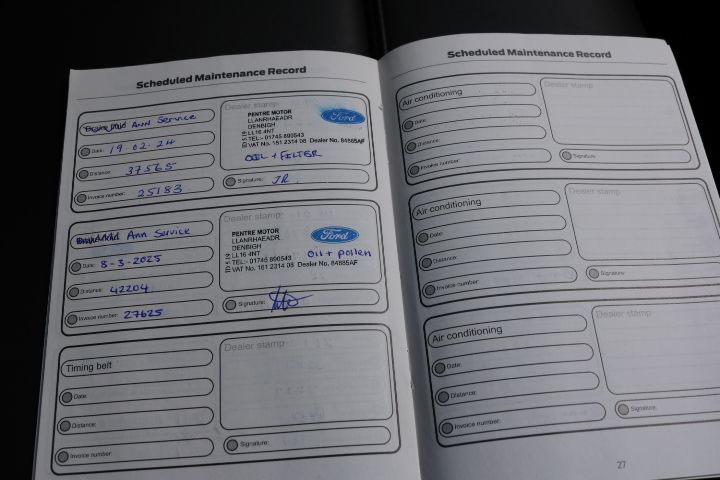 Scheduled Maintenance Record
Brake fluid Ann Service
Date: 19-02-24
Distance: 37565
Invoice number: 25183
Dealer stamp
PENTRE MOTOR
LLANRHAEADR
DENBIGH
LL16 4NT
TEL:- 01745 890543
VAT No. 161 2314 08 Dealer No. 84885AF
Ford
OIL + FILTER
Signature: JR
Brake fluid Ann Service
Date: 8-3-2025
Distance: 42204
Invoice number: 27625
Dealer stamp
PENTRE MOTOR
LLANRHAEADR
DENBIGH
LL16 4NT
TEL:- 01745 890543
VAT No. 161 2314 08 Dealer No. 84885AF
Ford
Oil + pollen
Signature:
Timing belt
Date:
Distance:
Invoice number:
Dealer stamp
Signature:
Scheduled Maintenance Record
Air conditioning
Date:
Distance:
Invoice number:
Dealer stamp
Signature:
Air conditioning
Date:
Distance:
Invoice number:
Dealer stamp
Signature:
Air conditioning
Date:
Distance:
Invoice number:
Dealer stamp
Signature:
27